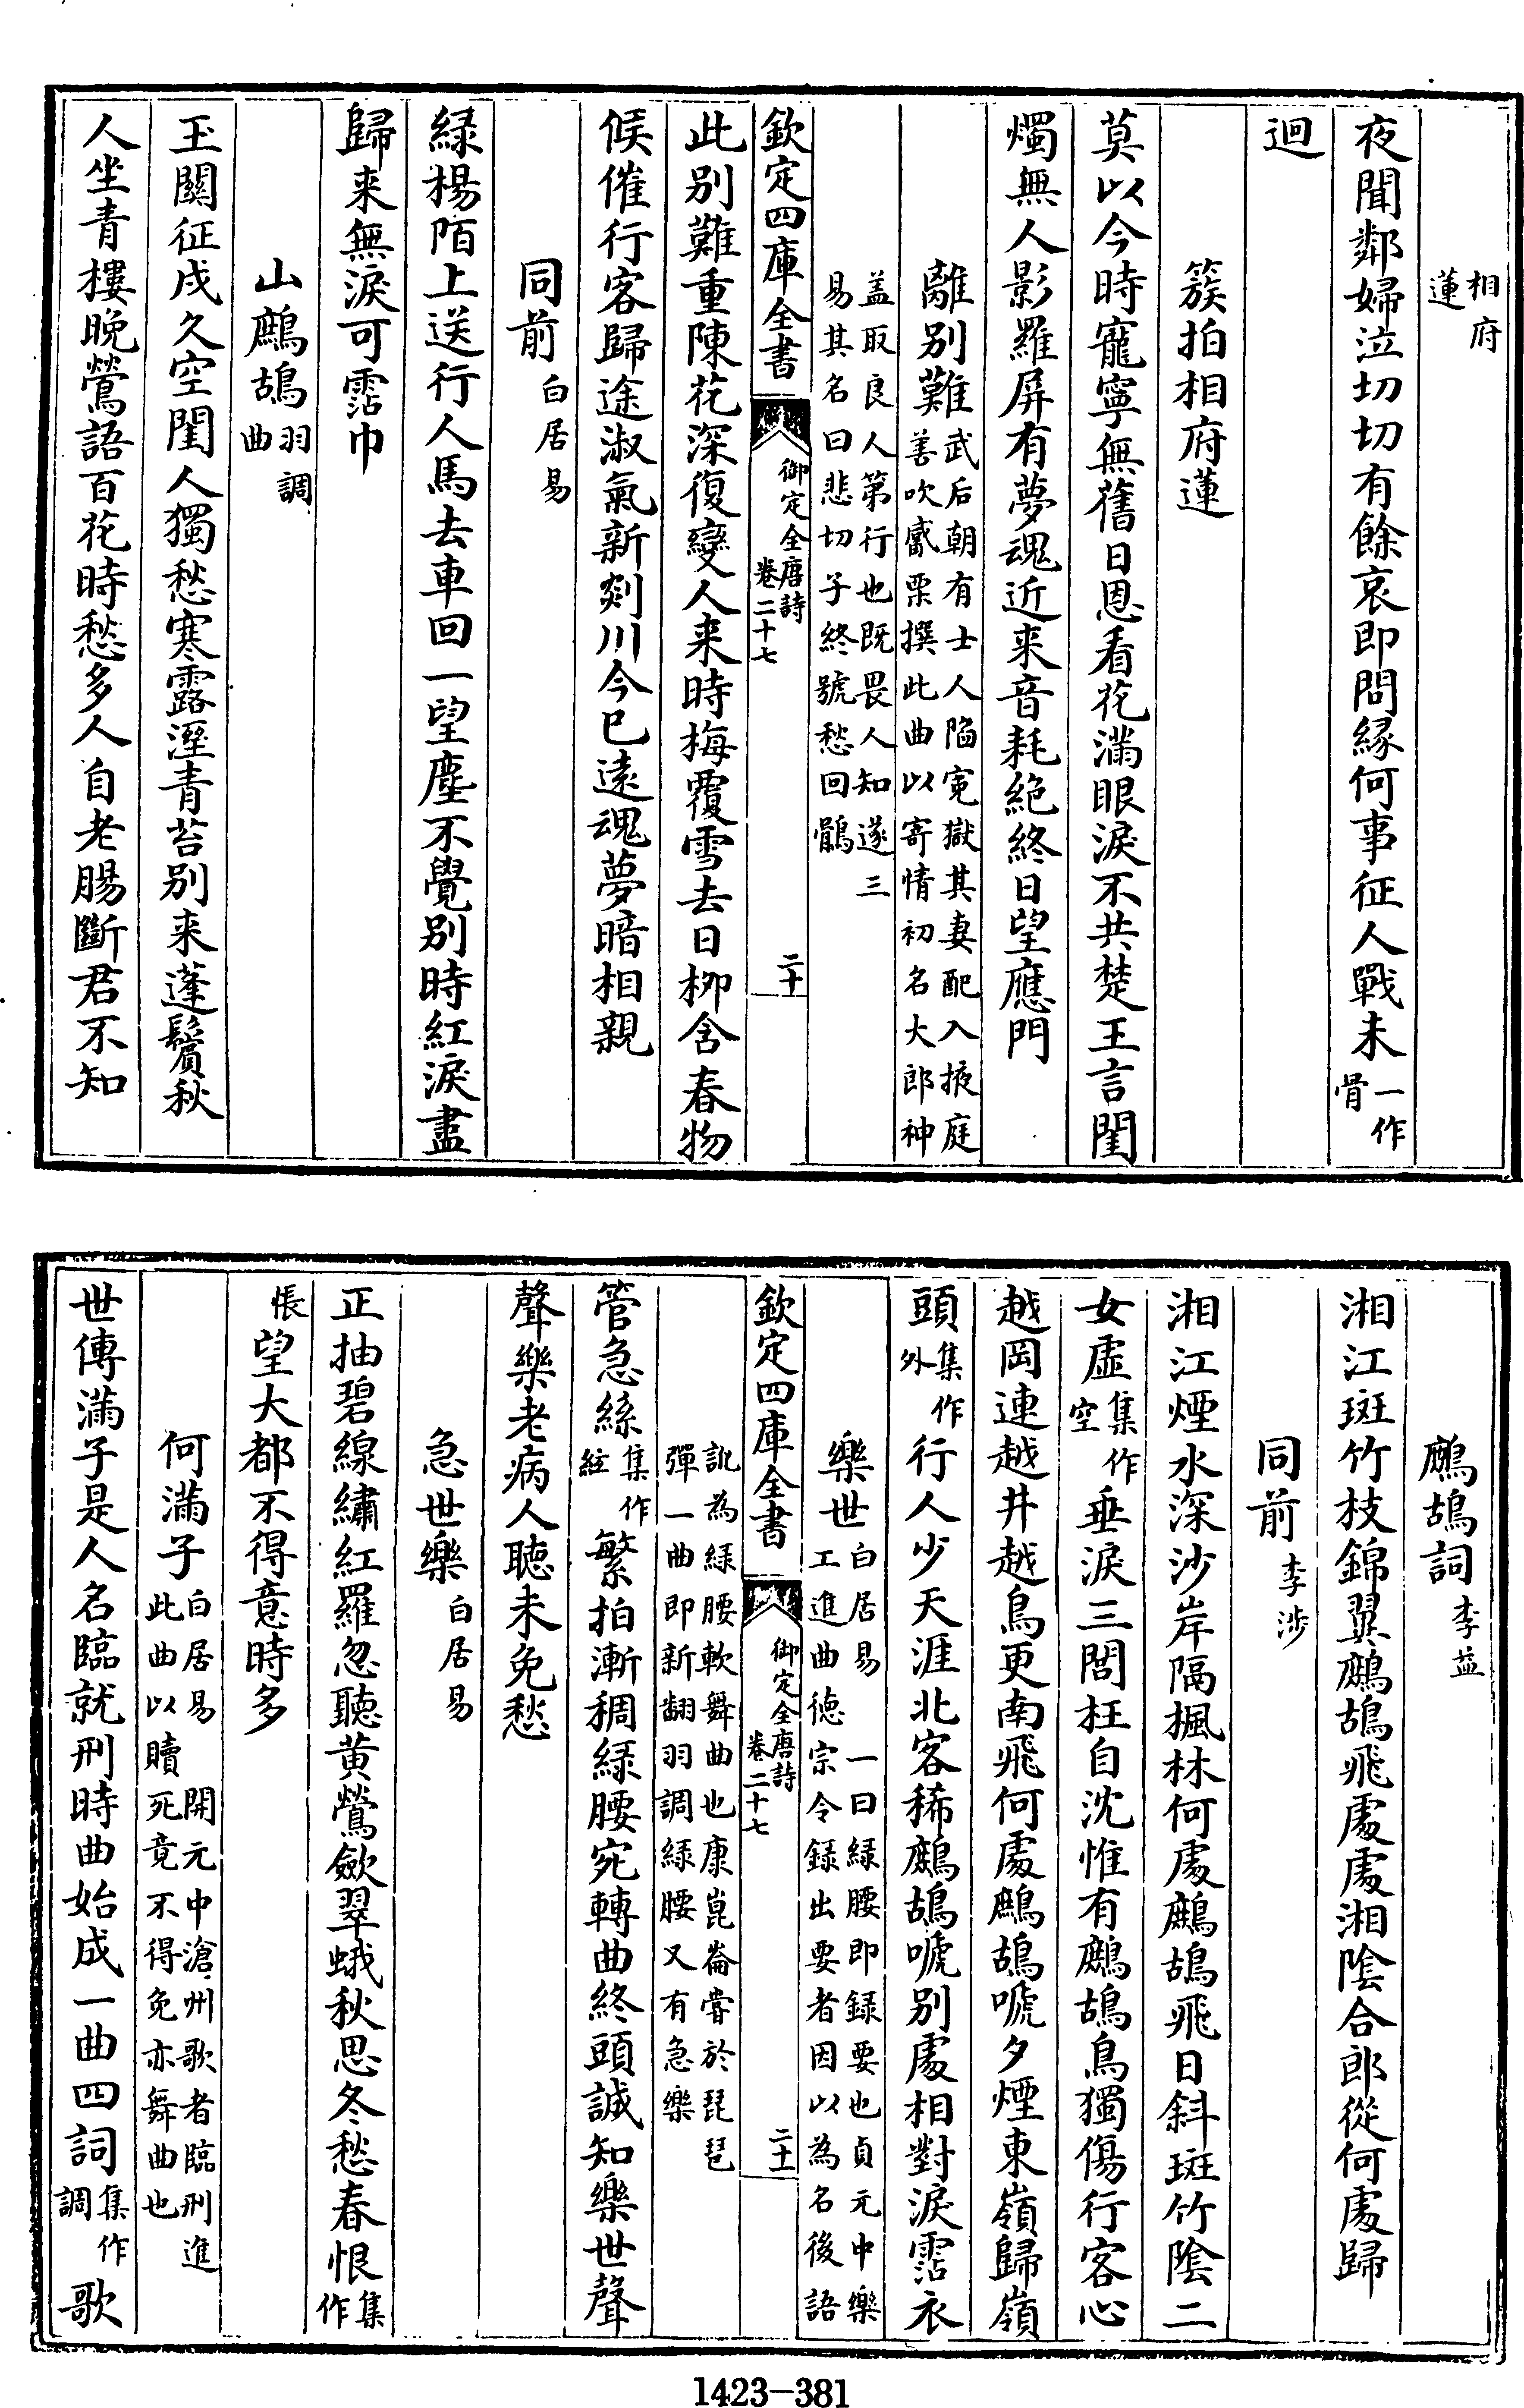 相府蓮
夜聞鄰婦泣切切有餘哀即問緣何事征人戰未一作骨
迴
簇拍相府蓮
莫以今時寵寧無舊日恩看花滿眼淚不共楚王言閨
燭無人影羅屏有夢魂近来音耗絶終日望應門
離别難武后朝有士人陷寃獄其妻配入掖庭善吹觱栗撰此曲以寄情初名大郎神
盖取良人第行也既畏人知遂三易其名曰悲切子終號愁回鶻
欽定四庫全書 御定全唐詩卷二十七 二十
此别難重陳花深復變人来時梅覆雪去日柳含春物
候催行客歸途淑氣新剡川今已遠魂夢暗相親
同前白居易
緑楊陌上送行人馬去車回一望塵不覺别時紅淚盡
歸来無淚可霑巾
山鷓鴣羽調曲
玉關征戍久空閨人獨愁寒露溼青苔别来蓬鬢秋
人坐青樓晚鶯語百花時愁多人自老腸斷君不知
鷓鴣詞李益
湘江斑竹枝錦翼鷓鴣飛處處湘陰合郎從何處歸
同前李涉
湘江煙水深沙岸隔楓林何處鷓鴣飛日斜斑竹陰二
女虛集作空垂淚三閭枉自沈惟有鷓鴣鳥獨傷行客心
越岡連越井越鳥更南飛何處鷓鴣嗁夕煙東嶺歸嶺
頭集作外行人少天涯北客稀鷓鴣嗁别處相對淚霑衣
樂世白居易 一曰緑腰即録要也貞元中樂工進曲德宗令録出要者因以為名後語
欽定四庫全書 御定全唐詩卷二十七 二十一
訛為緑腰軟舞曲也康崑崙嘗於琵琶彈一曲即新翻羽調緑腰又有急樂
管急絲集作絃繁拍漸稠緑腰宛轉曲終頭誠知樂世聲
聲樂老病人聽未免愁
急世樂白居易
正抽碧線繡紅羅忽聽黄鶯歛翠蛾秋思冬愁春恨集作
悵望大都不得意時多
何滿子白居易 開元中滄州歌者臨刑進此曲以贖死竟不得免亦舞曲也
世傳滿子是人名臨就刑時曲始成一曲四詞集作調歌
1423-381